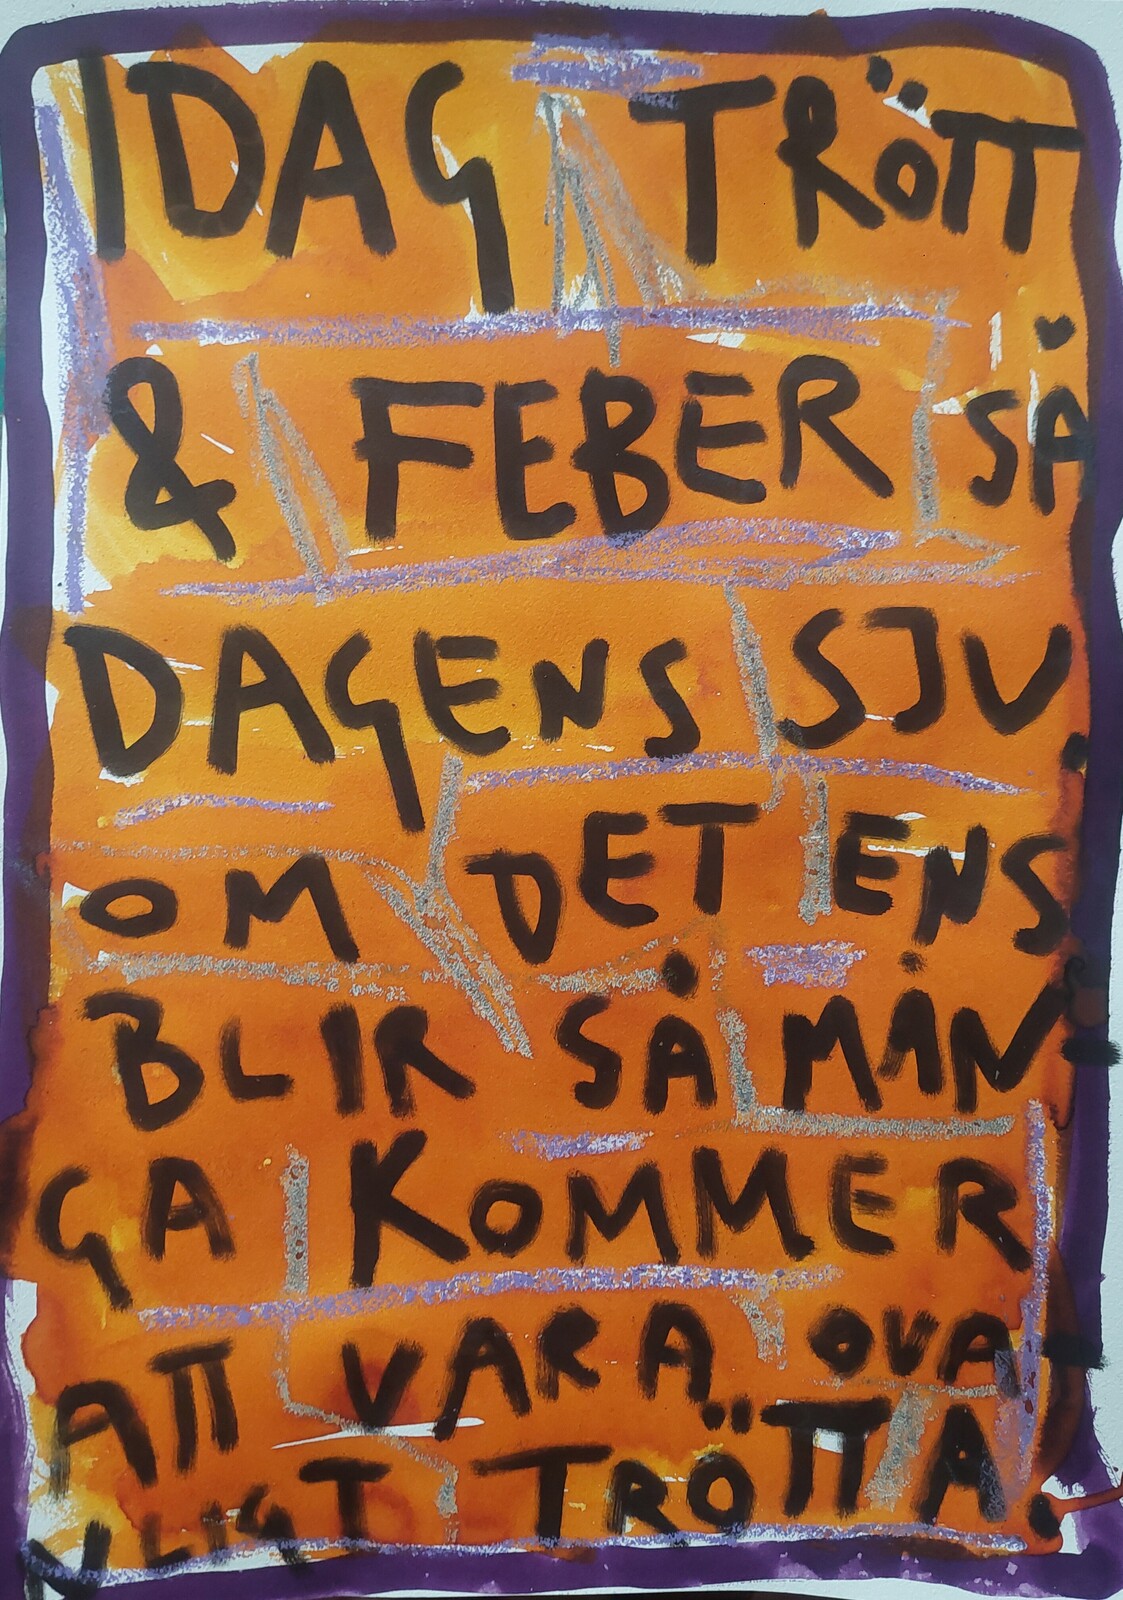 IDAG TRÖTT
& FEBER SÅ
DAGENS SJU.
OM DET ENS
BLIR SÅ MÅN
GA KOMMER
ATT VARA OVA
NLIGT TRÖTTA.